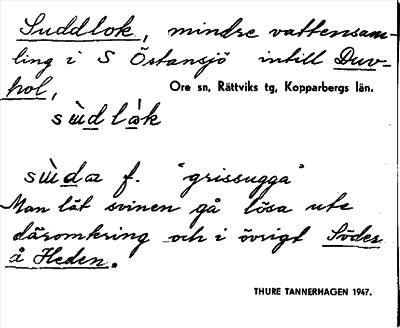 Suddlok, mindre vattensam-
ling i S Östansjö intill Duv-
hol,
Ore sn, Rättviks tg, Kopparbergs län.
sùdlàk
sùda f. "grissugga"
Man lät svinen gå lösa ute
däromkring och i övrigt Söder
å Heden.
THURE TANNERHAGEN 1947.